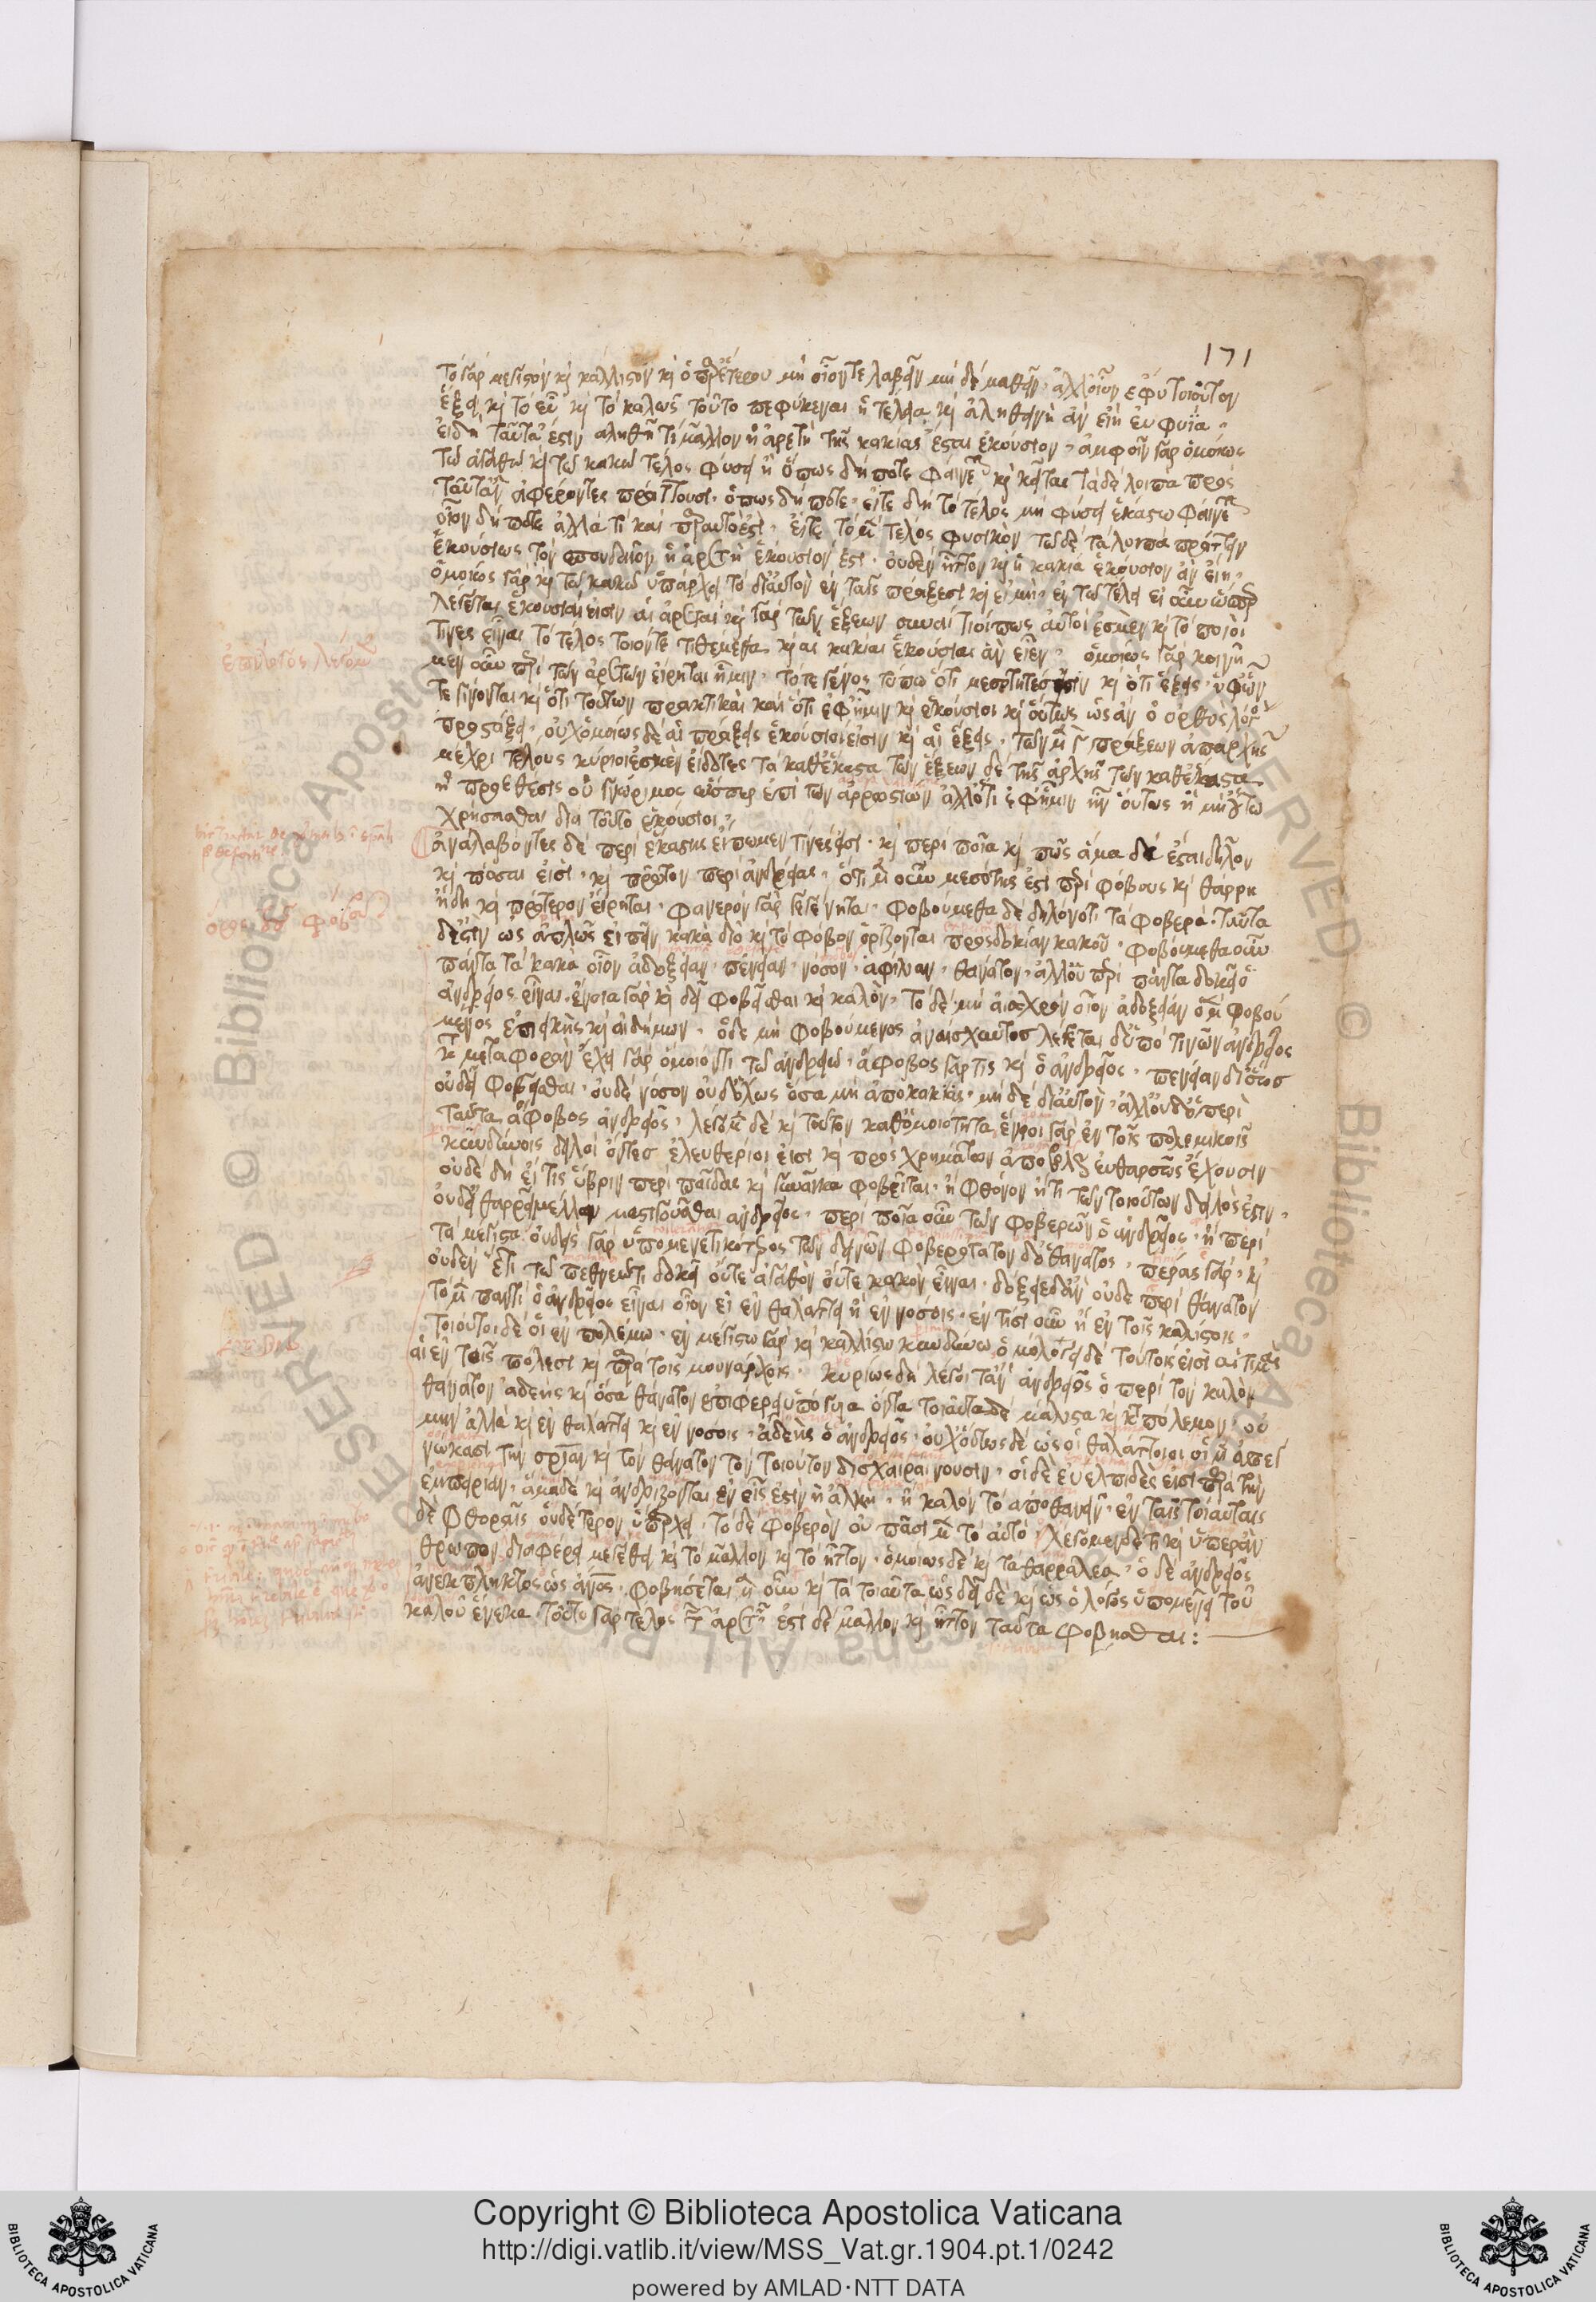 171
τὸ γὰρ μέγιστον καὶ κάλλιστον καὶ ὃ παρ' ἑτέρου μὴ οἷόν τε λαβεῖν μὴ δὲ μαθεῖν, ἀλλ' οἷον ἔφυ τοιοῦτον
ἕξει καὶ τὸ εὖ καὶ τὸ καλῶς τοῦτο πεφυκέναι ἡ τελεία καὶ ἀληθινὴ ἂν εἴη εὐφυΐα.
εἰ δὴ ταῦτά ἐστιν ἀληθῆ τί μᾶλλον ἡ ἀρετὴ τῆς κακίας ἔσται ἑκούσιον. ἀμφοῖν γὰρ ὁμοίως
τῶ ἀγαθῶ καὶ τῶ κακῶ τέλος φύσει ἢ ὅπως δή ποτε φαίνεται καὶ κεῖται τὰ δὲ λοιπὰ πρὸς
ταῦτ' ἀναφέροντες πράττουσι. ὅπως δή ποτε. εἴτε δὴ τὸ τέλος μὴ φύσει ἑκάστω φαίνεται
οἷον δή ποτε ἀλλά τι καὶ παρ' αὐτό ἐστι. εἴτε τὸ μὲν τέλος φυσικὸν τῶ δὲ τὰ λοιπὰ πράττειν
ἑκουσίως τὸν σπουδαῖον ἡ ἀρετὴ ἑκούσιόν ἐστι. οὐδὲν ἧττον καὶ ἡ κακία ἑκούσιον ἂν εἴη.
ὁμοίως γὰρ καὶ τῶ κακῶ ὑπάρχει τὸ δι' αὐτὸν ἐν ταῖς πράξεσι καὶ εἰ μὴ ἐν τῶ τέλει εἰ οὖν ὥσπερ
λέγεται ἑκούσιαί εἰσιν αἱ ἀρεταὶ καὶ γὰρ τῶν ἕξεων συναίτιοί πως αὐτοί ἐσμεν καὶ τὸ ποιοί
τινες εἶναι τὸ τέλος τοιόνδε τιθέμεθα, καὶ αἱ κακίαι ἑκούσιαι ἂν εἶεν. ὁμοίως γὰρ κοινῆ
μὲν οὖν περὶ τῶν ἀρετῶν εἴρηται ἡμῖν. τό τε γένος τύπω ὅτι μεσότητές εἰσιν καὶ ὅτι ἕξεις. ὑφ' ὧν
τε γίνονται καὶ ὅτι τούτων πρακτικαὶ καὶ ὅτι ἐφ' ἡμῖν καὶ ἑκούσιοι καὶ οὕτως ὡς ἂν ὁ ὀρθὸς λόγος
προστάξει. οὐχ ὁμοίως δὲ αἱ πράξεις ἑκούσιοί εἰσιν καὶ αἱ ἕξεις. τῶν μὲν γὰρ πράξεων ἀπ' ἀρχῆς
μέχρι τέλους κύριοί ἐσμεν εἰδότες τὰ καθ' ἕκαστα τῶν ἕξεων δὲ τῆς ἀρχῆς τῶν καθ' ἕκαστα
ἡ πρόσθεσις οὐ γνώριμος ὥσπερ ἐπὶ τῶν ἀρρωστιῶν ἀλλ' ὅτι ἐφ' ἡμῖν ἦν οὕτως ἢ μὴ οὕτω
χρήσασθαι διὰ τοῦτο ἑκούσιοι.
ἀναλαβόντες δὲ περὶ ἑκάστης εἴπωμεν τίνες εἰσὶ. καὶ περὶ ποῖα καὶ πῶς ἅμα δὲ ἔσται δῆλον
καὶ πόσαι εἰσὶ. καὶ πρῶτον περὶ ἀνδρείας. ὅτι μὲν οὖν μεσότης ἐστὶ περὶ φόβους καὶ θάρρη
ἤδη καὶ πρότερον εἴρηται. φανερὸν γὰρ γεγένηται. φοβούμεθα δὲ δηλονότι τὰ φοβερὰ. ταῦτα
δ' ἐστὶν ὡς ἁπλῶς εἰπεῖν κακὰ διὸ καὶ τὸ φόβον ὁρίζονται προσδοκίαν κακοῦ. φοβούμεθα οὖν
πάντα τὰ κακὰ οἷον ἀδοξίαν. πενίαν. νόσον. ἀφιλίαν. θάνατον. ἀλλ' οὐ περὶ πάντα δοκεῖ ὁ
ἀνδρεῖος εἶναι. ἔνια γὰρ καὶ δεῖ φοβεῖσθαι καὶ καλὸν. τὸ δὲ μὴ αἰσχρὸν οἷον ἀδοξίαν ὁ μὲν φοβού
μενος ἐπιεικὴς καὶ αἰδήμων. ὁ δὲ μὴ φοβούμενος ἀναίσχυντος λέγεται δ' ὑπό τινων ἀνδρεῖος
κατὰ μεταφορὰν ἔχει γὰρ ὅμοιόν τι τῶ ἀνδρείω. ἄφοβος γάρ τις καὶ ὁ ἀνδρεῖος. πενίαν δ' ἴσως
οὐ δεῖ φοβεῖσθαι. οὐδὲ νόσον οὐδ' ὅλως ὅσα μὴ ἀπὸ κακίας. μὴ δὲ δι' αὐτὸν. ἀλλ' οὐδ' ὁ περὶ
ταῦτα ἄφοβος ἀνδρεῖος. λέγομεν δὲ καὶ τοῦτον καθ' ὁμοιότητα. ἔνιοι γὰρ ἐν τοῖς πολεμικοῖς
κινδύνοις δειλοὶ ὄντες ἐλευθέριοί εἰσι καὶ πρὸς χρημάτων ἀποβολὴν εὐθαρσῶς ἔχουσιν
οὐδὲ δὴ εἴ τις ὕβριν περὶ παῖδας καὶ γυναῖκα φοβεῖται. ἢ φθόνον ἤ τι τῶν τοιούτων δειλός ἐστιν.
οὐδ' εἰ θαρρεῖ μέλλων μαστιγοῦσθαι ἀνδρεῖος. περὶ ποῖα οὖν τῶν φοβερῶν ὁ ἀνδρεῖος. ἢ περὶ
τὰ μέγιστα οὐδεὶς γὰρ ὑπομενετικώτερος τῶν δεινῶν φοβερώτατον δ' ὁ θάνατος. πέρας γάρ. καὶ
οὐδὲν ἔτι τῶ τεθνεῶτι δοκεῖ οὔτε ἀγαθὸν οὔτε κακὸν εἶναι. δόξειε δ' ἂν οὐδὲ περὶ θάνατον
τὸν ἐν παντὶ ὁ ἀνδρεῖος εἶναι οἷον εἰ ἐν θαλάττη ἢ ἐν νόσοις. ἐν τίσι οὖν ἢ ἐν τοῖς καλίστοις.
τοιοῦτοι δὲ οἱ ἐν πολέμω. ἐν μεγίστω γὰρ καὶ καλλίστω κινδύνω ὁμόλογοι δὲ τούτοις εἰσὶ αἱ τιμαὶ
αἱ ἐν ταῖς πόλεσι καὶ παρὰ τοῖς μονάρχοις. κυρίως δὴ λέγοιτ' ἂν ἀνδρεῖος ὁ περὶ τὸν καλὸν
θάνατον ἀδεὴς καὶ ὅσα θάνατον ἐπιφέρει ὑπόγυια ὄντα τοιαῦτα δὲ μάλιστα καὶ κατὰ πόλεμον. οὐ
μὴν ἀλλὰ καὶ ἐν θαλάττη καὶ ἐν νόσοις. ἀδεὴς ὁ ἀνδρεῖος. οὐχ οὕτως δὲ ὡς οἱ θαλάττιοι οἱ μὲν ἀπεγ
νώκασι τὴν σωτηρίαν καὶ τὸν θάνατον τὸν τοιοῦτον δυσχεραίνουσιν. οἱ δὲ εὐέλπιδές εἰσι παρὰ τὴν
ἐμπειρίαν. ἅμα δὲ καὶ ἀνδρίζονται ἐν οἷς ἐστὶν ἡ ἀλκὴ. ἢ καλὸν τὸ ἀποθανεῖν. ἐν ταῖς τοιαύταις
δὲ φθοραῖς οὐδέτερον ὑπάρχει. τὸ δὲ φοβερὸν οὐ πᾶσι μὲν τὸ αὐτό. λέγομεν δέ τι καὶ ὑπὲρ ἄν
θρωπον διαφέρει μεγέθει καὶ τὸ μᾶλλον καὶ τὸ ἧττον. ὁμοίως δὲ καὶ τὰ θαρραλέα. ὁ δὲ ἀνδρεῖος
ἀνέκπληκτος ὡς ἄνος. φοβήσεται μὲν οὖν καὶ τὰ τοιαῦτα ὡς δεῖ δὲ καὶ ὡς ὁ λόγος ὑπομένει τοῦ
καλοῦ ἕνεκα. τοῦτο γὰρ τέλος τῆς ἀρετῆς ἔστι δὲ μᾶλλον καὶ ἧττον ταῦτα φοβῆσθαι:
Copyright © Biblioteca Apostolica Vaticana
http://digi.vatlib.it/view/MSS_Vat.gr.1904.pt.1/0242
powered by AMLAD·NTT DATA
BIBLIOTECA APOSTOLICA VATICANA
BIBLIOTECA APOSTOLICA VATICANA